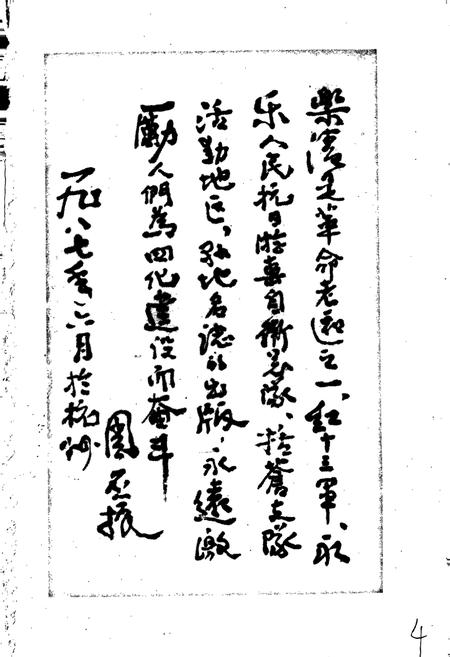 樂清是革命老區之一、紅十三軍、永
乐人民抗日游击自衛总隊、括蒼支隊
活動地区，地名志的出版，永遠激
勵人們為四化建设而奋斗
一九八七年六月於杭州
周丕振
4